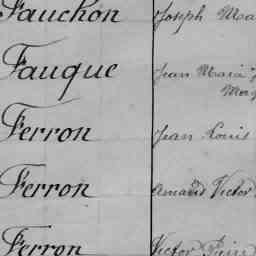 Fauchon Joseph
Fauque Jean Maria
Ferron Jean Louis
Ferron Amand Victor
Ferron Victor